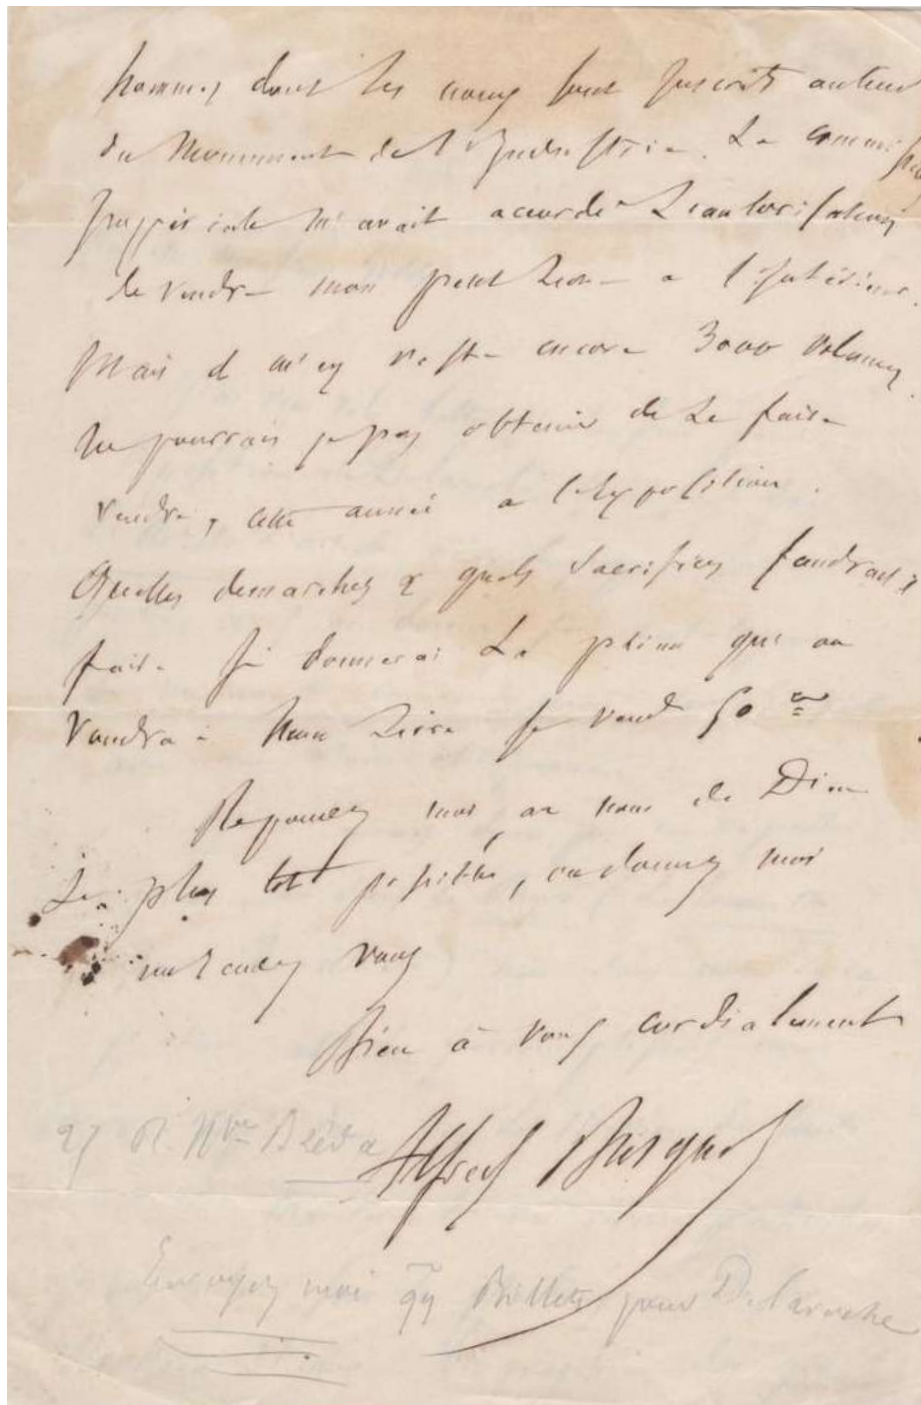 hommes dont les noms sont inscrits autour
du Monument de l'Industrie. La commission
Impériale m'avait accordé L'autorisation
de vendre mon petit Livre a l'intérieur.
Mais il m'en reste encore 3000 volumes.
Ne pourrais je pas obtenir de Le faire
vendre, cette année a l'Exposition.
Quelles demarches & quels Sacrifices faudrait il
faire. Je donnerai La prime qu'on
voudra - Mon Livre se vend 50 c
Reponez moi au nom de Dieu
Le plus tot possible, ou donnez moi
un rendez vous
Bien à vous cordialement
Alfred Busquet
27 R. Nve Bréda
Envoyez moi qq Billets pour Delaroche